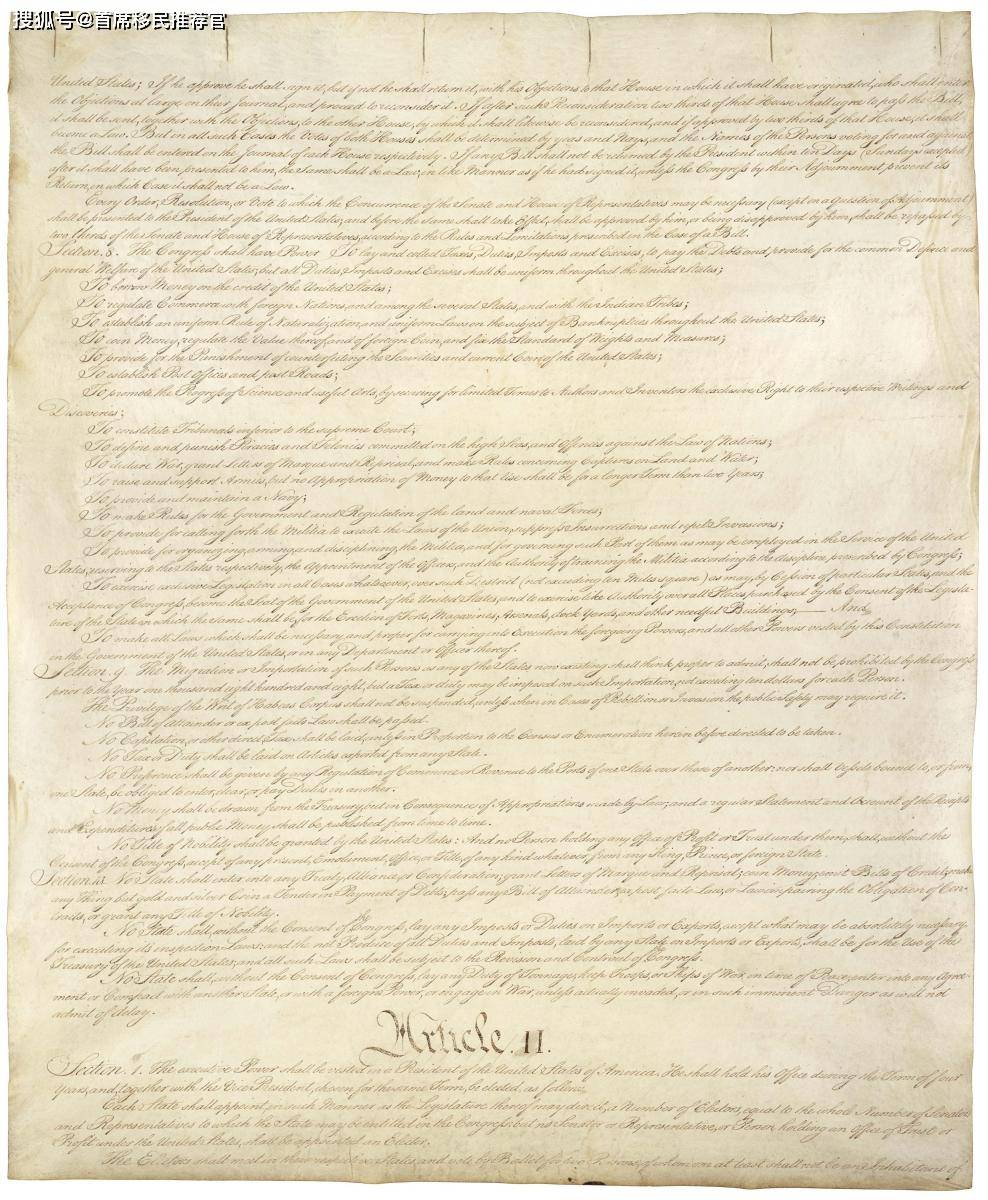 搜狐号@首席移民推荐官
United States; If he approve he shall sign it, but if not he shall return it, with his Objections to that House in which it shall have originated, who shall enter
the Objections at large on their Journal, and proceed to reconsider it. If after such Reconsideration two thirds of that House shall agree to pass the Bill,
it shall be sent, together with the Objections, to the other House, by which it shall likewise be reconsidered, and if approved by two thirds of that House, it shall
become a Law. But in all such Cases the Votes of both Houses shall be determined by yeas and Nays, and the Names of the Persons voting for and against
the Bill shall be entered on the Journal of each House respectively. If any Bill shall not be returned by the President within ten Days (Sundays excepted)
after it shall have been presented to him, the Same shall be a Law, in like Manner as if he had signed it, unless the Congress by their Adjournment prevent its
Return, in which Case it shall not be a Law.
Every Order, Resolution, or Vote to which the Concurrence of the Senate and House of Representatives may be necessary (except on a question of Adjournment)
shall be presented to the President of the United States; and before the Same shall take Effect, shall be approved by him, or being disapproved by him, shall be repassed by
two thirds of the Senate and House of Representatives, according to the Rules and Limitations prescribed in the Case of a Bill.
Section. 8. The Congress shall have Power To lay and collect Taxes, Duties, Imposts and Excises, to pay the Debts and provide for the common Defence and
general Welfare of the United States; but all Duties, Imposts and Excises shall be uniform throughout the United States;
To borrow Money on the credit of the United States;
To regulate Commerce with foreign Nations, and among the several States, and with the Indian Tribes;
To establish an uniform Rule of Naturalization, and uniform Laws on the subject of Bankruptcies throughout the United States;
To coin Money, regulate the Value thereof, and of foreign Coin, and fix the Standard of Weights and Measures;
To provide for the Punishment of counterfeiting the Securities and current Coin of the United States;
To establish Post Offices and post Roads;
To promote the Progress of Science and useful Arts, by securing for limited Times to Authors and Inventors the exclusive Right to their respective Writings and
Discoveries;
To constitute Tribunals inferior to the supreme Court;
To define and punish Piracies and Felonies committed on the high Seas, and Offences against the Law of Nations;
To declare War, grant Letters of Marque and Reprisal, and make Rules concerning Captures on Land and Water;
To raise and support Armies, but no Appropriation of Money to that Use shall be for a longer Term than two Years;
To provide and maintain a Navy;
To make Rules for the Government and Regulation of the land and naval Forces;
To provide for calling forth the Militia to execute the Laws of the Union, suppress Insurrections and repel Invasions;
To provide for organizing, arming, and disciplining, the Militia, and for governing such Part of them as may be employed in the Service of the United
States, reserving to the States respectively, the Appointment of the Officers, and the Authority of training the Militia according to the discipline prescribed by Congress;
To exercise exclusive Legislation in all Cases whatsoever, over such District (not exceeding ten Miles square) as may, by Cession of particular States, and the
Acceptance of Congress, become the Seat of the Government of the United States, and to exercise like Authority over all Places purchased by the Consent of the Legisla-
ture of the State in which the Same shall be, for the Erection of Forts, Magazines, Arsenals, dock-Yards, and other needful Buildings;—And
To make all Laws which shall be necessary and proper for carrying into Execution the foregoing Powers, and all other Powers vested by this Constitution
in the Government of the United States, or in any Department or Officer thereof.
Section. 9. The Migration or Importation of such Persons as any of the States now existing shall think proper to admit, shall not be prohibited by the Congress
prior to the Year one thousand eight hundred and eight, but a Tax or duty may be imposed on such Importation, not exceeding ten dollars for each Person.
The Privilege of the Writ of Habeas Corpus shall not be suspended, unless when in Cases of Rebellion or Invasion the public Safety may require it.
No Bill of Attainder or ex post facto Law shall be passed.
No Capitation, or other direct, Tax shall be laid, unless in Proportion to the Census or Enumeration herein before directed to be taken.
No Tax or Duty shall be laid on Articles exported from any State.
No Preference shall be given by any Regulation of Commerce or Revenue to the Ports of one State over those of another: nor shall Vessels bound to, or from,
one State, be obliged to enter, clear, or pay Duties in another.
No Money shall be drawn from the Treasury, but in Consequence of Appropriations made by Law; and a regular Statement and Account of the Receipts
and Expenditures of all public Money shall be published from time to time.
No Title of Nobility shall be granted by the United States: And no Person holding any Office of Profit or Trust under them, shall, without the
Consent of the Congress, accept of any present, Emolument, Office, or Title, of any kind whatever, from any King, Prince, or foreign State.
Section. 10. No State shall enter into any Treaty, Alliance, or Confederation; grant Letters of Marque and Reprisal; coin Money; emit Bills of Credit; make
any Thing but gold and silver Coin a Tender in Payment of Debts; pass any Bill of Attainder, ex post facto Law, or Law impairing the Obligation of Con-
tracts, or grant any Title of Nobility.
No State shall, without the Consent of the Congress, lay any Imposts or Duties on Imports or Exports, except what may be absolutely necessary
for executing its inspection Laws: and the net Produce of all Duties and Imposts, laid by any State on Imports or Exports, shall be for the Use of the
Treasury of the United States; and all such Laws shall be subject to the Revision and Controul of the Congress.
No State shall, without the Consent of Congress, lay any Duty of Tonnage, keep Troops, or Ships of War in time of Peace, enter into any Agree-
ment or Compact with another State, or with a foreign Power, or engage in War, unless actually invaded, or in such imminent Danger as will not
admit of delay.
Article. II.
Section. 1. The executive Power shall be vested in a President of the United States of America. He shall hold his Office during the Term of four
Years, and, together with the Vice President, chosen for the same Term, be elected, as follows
Each State shall appoint, in such Manner as the Legislature thereof may direct, a Number of Electors, equal to the whole Number of Senators
and Representatives to which the State may be entitled in the Congress: but no Senator or Representative, or Person holding an Office of Trust or
Profit under the United States, shall be appointed an Elector.
The Electors shall meet in their respective States, and vote by Ballot for two Persons, of whom one at least shall not be an Inhabitant of